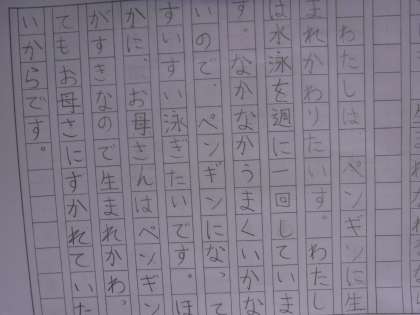 わたしは、ペンギンに生
まれかわりたいす。わたし
は水泳を週に一回していま
す。なかなかうまくいかな
いので、ペンギンになって
すいすい泳ぎたいです。ほ
かに、お母さんはペンギン
がすきなので生まれかわっ
てもお母さにすかれていた
いからです。